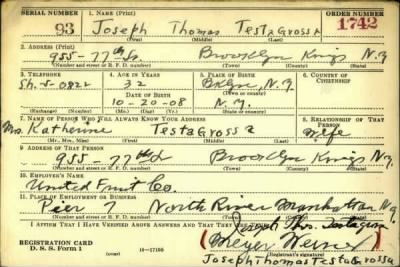 SERIAL NUMBER 1. NAME (Print) ORDER NUMBER
93 Joseph Thomas TestaGrossa 1742
(First) (Middle) (Last)
2. ADDRESS (Print)
955-77th St. Brooklyn Kings N.Y.
(Number and street or R. F. D. number) (Town) (County) (State)
3. TELEPHONE 4. AGE IN YEARS 5. PLACE OF BIRTH 6. COUNTRY OF CITIZENSHIP
Sh. 5-0822 32 Bklyn, N.Y.
DATE OF BIRTH (Town or county)
10-20-08 N.Y.
(Exchange) (Number) (Mo.) (Day) (Yr.) (State or country)
7. NAME OF PERSON WHO WILL ALWAYS KNOW YOUR ADDRESS 8. RELATIONSHIP OF THAT PERSON
Mrs. Katherine TestaGrossa Wife
(Mr., Mrs., Miss) (First) (Middle) (Last)
9. ADDRESS OF THAT PERSON
955-77th St Brooklyn Kings N.Y.
(Number and street or R. F. D. number) (Town) (County) (State)
10. EMPLOYER'S NAME
United Fruit Co.
11. PLACE OF EMPLOYMENT OR BUSINESS
Pier 7 North River Manhattan N.Y.
(Number and street or R. F. D. number) (Town) (County) (State)
I AFFIRM THAT I HAVE VERIFIED ABOVE ANSWERS AND THAT THEY
Joseph Thos.
REGISTRATION CARD
D. S. S. Form 1 (over) 16-17105 (Registrant's signature)
Joseph Thomas TestaGrossa